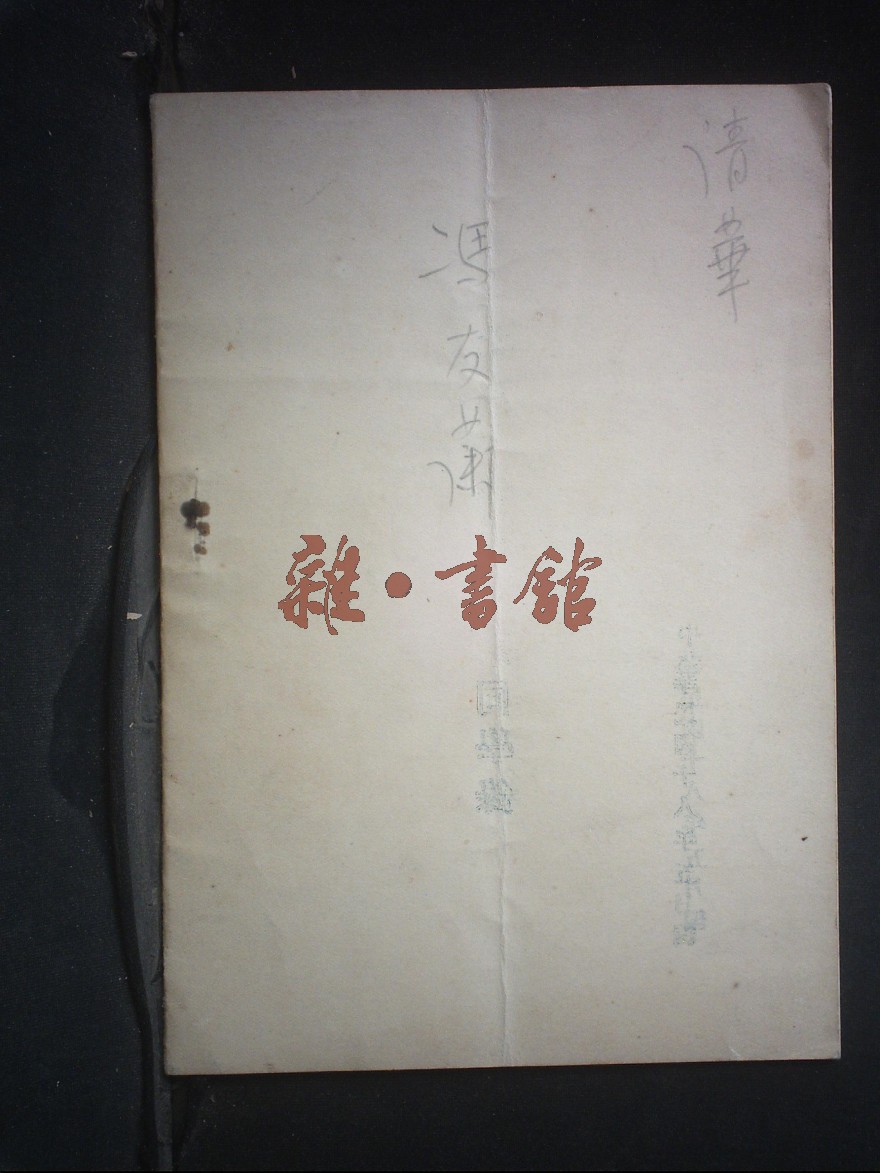 清華
馮友蘭
雜·書館
同學錄